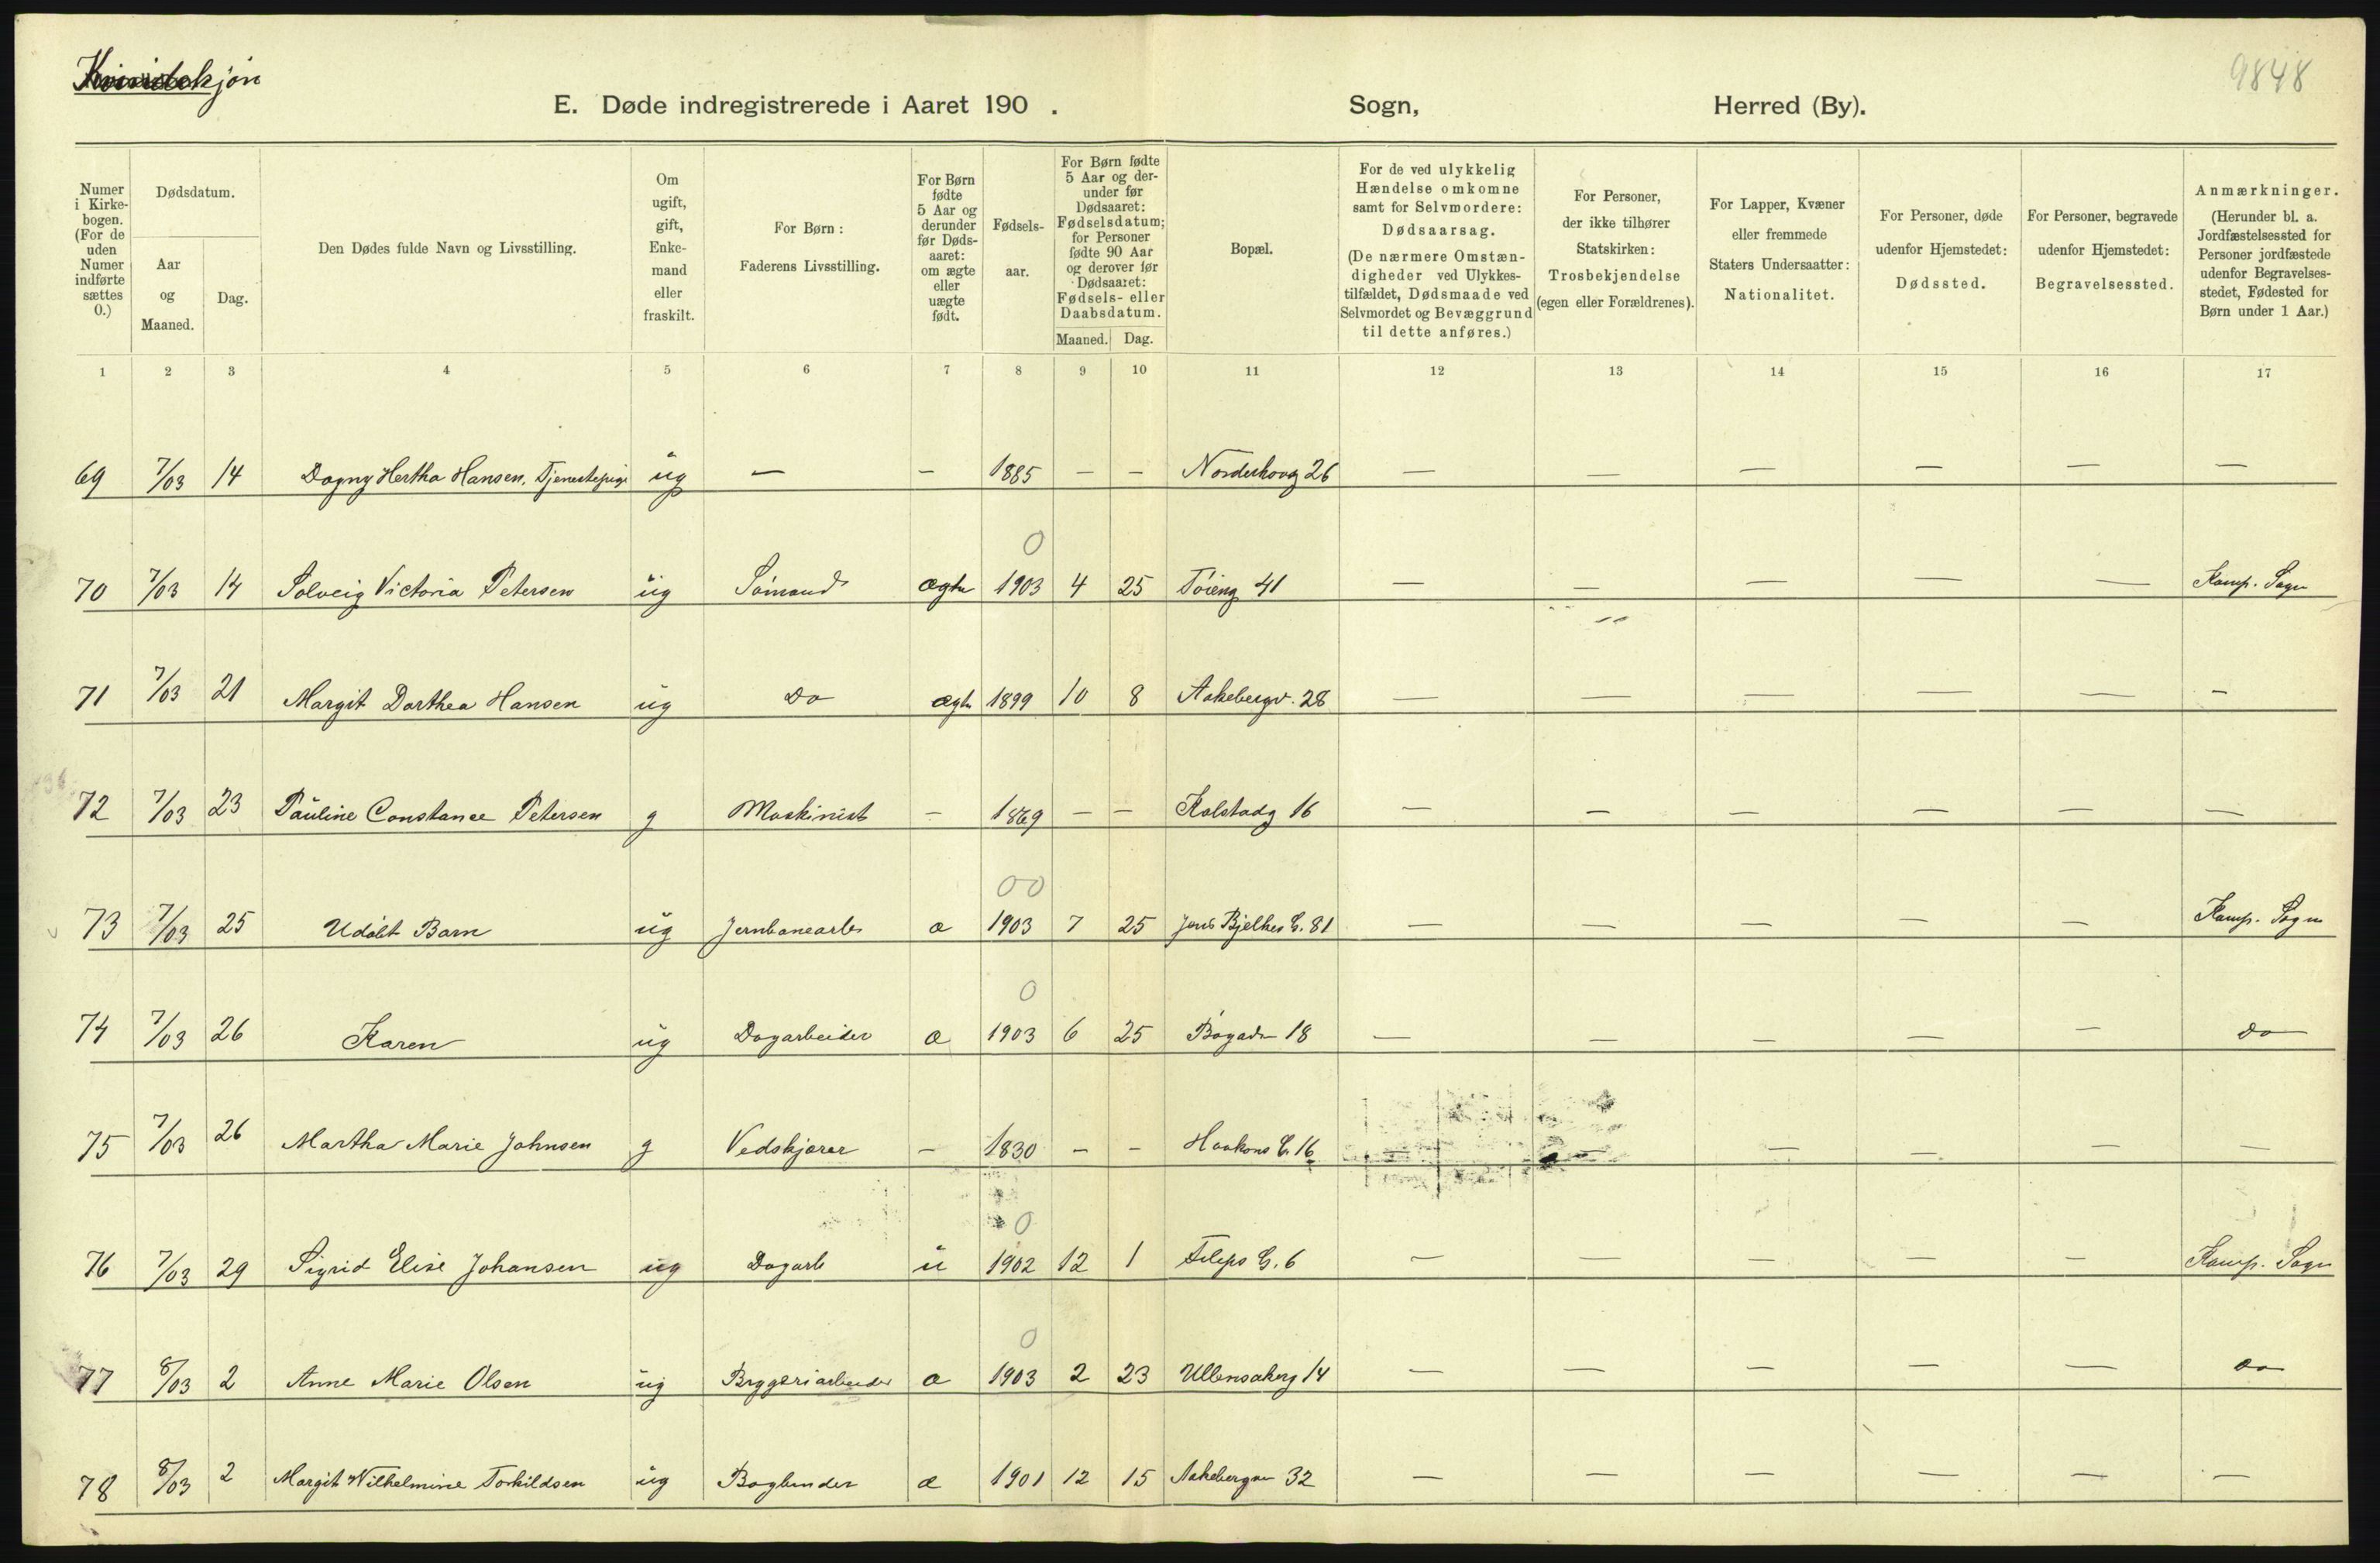 Kvindekjøn
9848
E. Døde indregistrerede i Aaret 190 . Sogn, Herred (By).
Numer i Kirke-bogen. (For de uden Numer indførte sættes 0.)
Dødsdatum.
Aar og Maaned.
Dag.
Den Dødes fulde Navn og Livsstilling.
Om ugift, gift, Enke-mand eller fraskilt.
For Børn: Faderens Livsstilling.
For Børn fødte 5 Aar og derunder før Døds-aaret: om ægte eller uægte født.
Fødsels-aar.
For Børn fødte 5 Aar og der-under før Dødsaaret: Fødselsdatum; for Personer fødte 90 Aar og derover før Dødsaaret: Fødsels- eller Daabsdatum.
Maaned. Dag.
Bopæl.
For de ved ulykkelig Hændelse omkomne samt for Selvmordere: Dødsaarsag. (De nærmere Omstæn-digheder ved Ulykkes-tilfældet, Dødsmaade ved Selvmordet og Bevæggrund til dette anføres.)
For Personer, der ikke tilhører Statskirken: Trosbekjendelse (egen eller Forældrenes).
For Lapper, Kvæner eller fremmede Staters Undersaatter: Nationalitet.
For Personer, døde udenfor Hjemstedet: Dødssted.
For Personer, begravede udenfor Hjemstedet: Begravelsessted.
Anmærkninger. (Herunder bl. a. Jordfæstelsessted for Personer jordfæstede udenfor Begravelses-stedet, Fødested for Børn under 1 Aar.)
1 2 3 4 5 6 7 8 9 10 11 12 13 14 15 16 17
69 7/03 14 Dagny Hertha Hansen, Tjenestepige ug — — 1885 — — Norderhovg 26 — — — — — —
0
70 7/03 14 Solveig Victoria Petersen ug Sömand ægte 1903 4 25 Töieng 41 — — — — — Kamp. Sogn
71 7/03 21 Margit Dorthea Hansen ug Do ægte 1899 10 8 Aakebergv. 28 — — — — — —
72 7/03 23 Pauline Constance Petersen g Maskinist — 1869 — — Kolstadg 16 — — — — — —
00
73 7/03 25 Udöbt Barn ug Jernbanearb æ 1903 7 25 Jens Bjelkes G. 81 — — — — — Kamp. Sogn
0
74 7/03 26 Karen ug Dagarbeider æ 1903 6 25 Bögadn 18 — — — — — Do
75 7/03 26 Martha Marie Johnsen g Vedskjærer — 1830 — — Haakons G. 16 — — — — — —
0
76 7/03 29 Sigrid Elise Johansen ug Dagarb u 1902 12 1 Filips G. 6 — — — — — Kamp. Sogn
0
77 8/03 2 Anne Marie Olsen ug Bryggeriarbeider æ 1903 2 23 Ullensakerg 14 — — — — — Do
78 8/03 2 Margit Wilhelmine Torkildsen ug Bogbinder æ 1901 12 15 Aakebergvn 32 — — — — — —